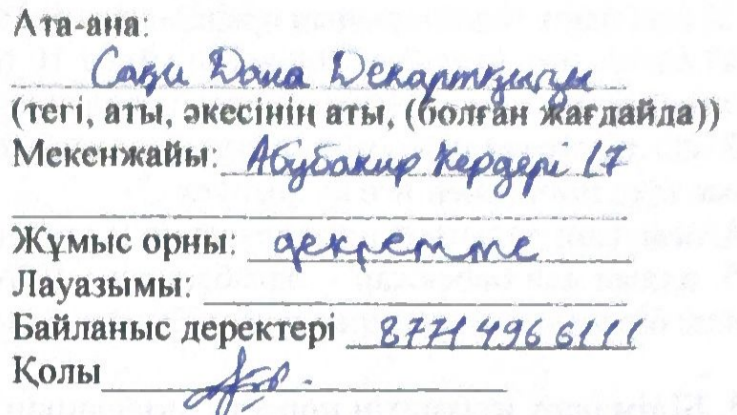 Ата-ана:
Сағи Дана Декартқызы
(тегі, аты, әкесінің аты, (болған жағдайда))
Мекенжайы: Абубакир Кердери 17
Жұмыс орны: декретте
Лауазымы:
Байланыс деректері 87714966111
Қолы